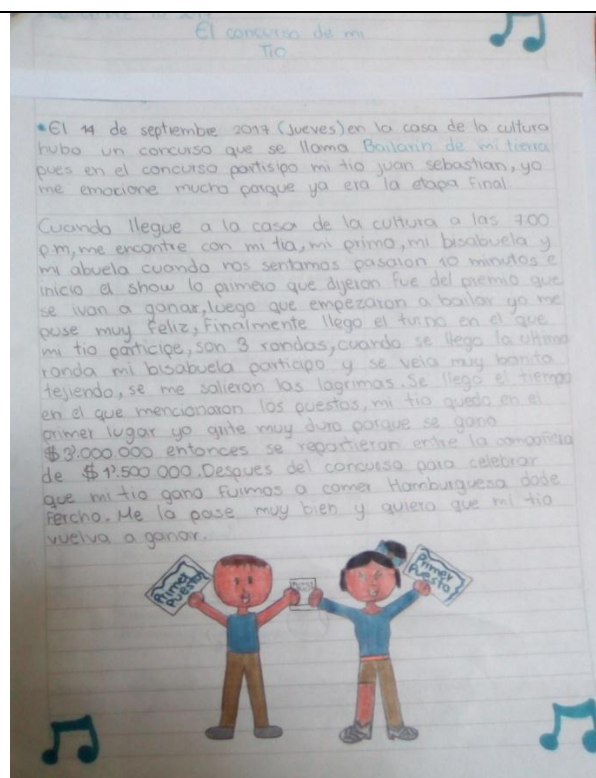 El concurso de mi
Tio
*El 14 de septiembre 2017 (Jueves) en la casa de la cultura
hubo un concurso que se llama Bailarin de mi tierra
pues en el concurso partisipo mi tio juan sebastian, yo
me emocione mucho porque ya era la etapa final
Cuando llegue a la casa de la cultura a las 7:00
p.m, me encontre con mi tia, mi primo, mi bisabuela y
mi abuela cuando nos sentamos pasaron 10 minutos e
inicio el show lo primero que dijeron fue del premio que
se ivan a ganar, luego que empezaron a bailar yo me
puse muy feliz, Finalmente llego el turno en el que
mi tio participe, son 3 rondas, cuando se llego la ultima
ronda mi bisabuela participo y se veia muy bonita
tejiendo, se me salieron las lagrimas. Se llego el tiempo
en el que mencionaron los puestos, mi tio quedo en el
primer lugar yo grite muy duro porque se gano
$3'000.000 entonces se repartieron entre la compañia
de $1'500.000. Desques del concurso para celebrar
que mi tio gano Fuimos a comer Hamburguesa dode
Percho. Me la pase muy bien y quiero que mi tio
vuelva a ganar.
Primer Puesto
Primer Puesto